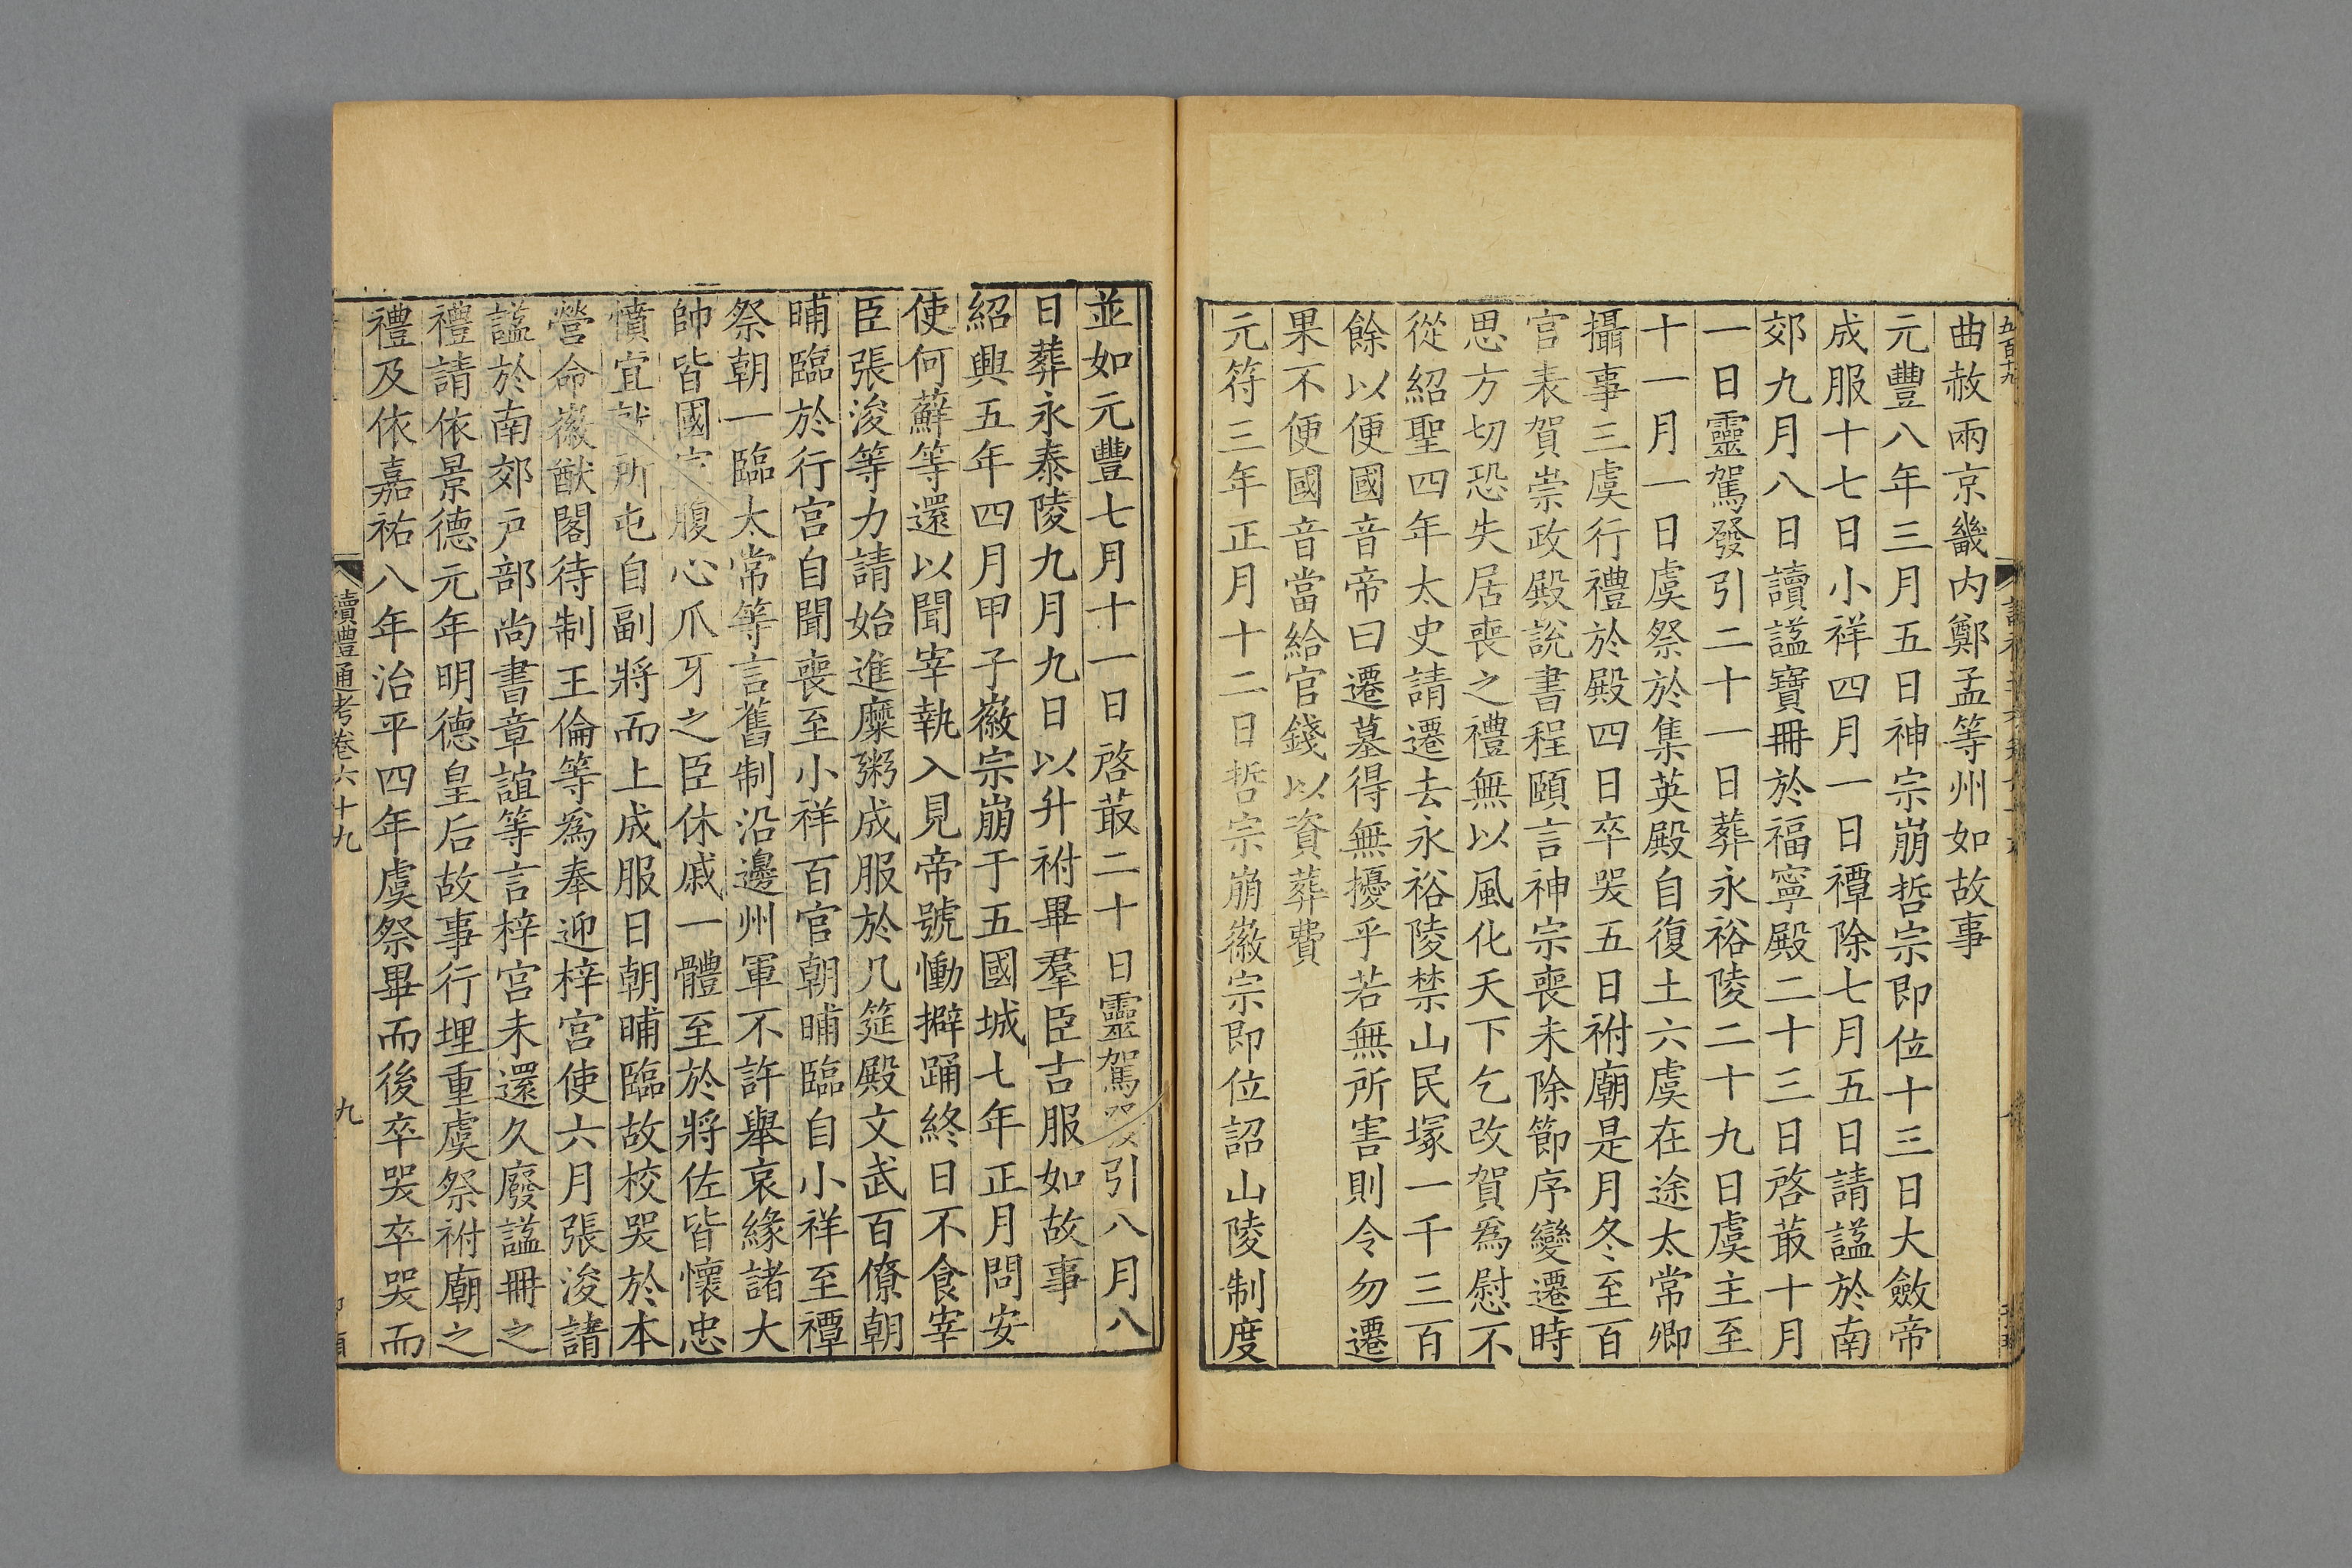 五百十九
曲赦兩京畿内鄭孟等州如故事
元豐八年三月五日神宗崩哲宗即位十三日大斂帝
成服十七日小祥四月一日禫除七月五日請諡於南
郊九月八日讀諡寶冊於福寧殿二十三日啓菆十月
一日靈駕發引二十一日葬永裕陵二十九日虞主至
十一月一日虞祭於集英殿自復土六虞在途太常卿
攝事三虞行禮於殿四日卒哭五日祔廟是月冬至百
官表賀崇政殿說書程頤言神宗喪未除節序變遷時
思方切恐失居喪之禮無以風化天下乞改賀爲慰不
從紹聖四年太史請遷去永裕陵禁山民塚一千三百
餘以便國音帝曰遷墓得無擾乎若無所害則令勿遷
果不便國音當給官錢以資葬費
元符三年正月十二日哲宗崩徽宗即位詔山陵制度
並如元豐七月十一日啓菆二十日靈駕發引八月八
日葬永泰陵九月九日以升祔畢羣臣吉服如故事
紹興五年四月甲子徽宗崩于五國城七年正月問安
使何蘚等還以聞宰執入見帝號慟擗踊終日不食宰
臣張浚等力請始進糜粥成服於几筵殿文武百僚朝
晡臨於行宮自聞喪至小祥百官朝晡臨自小祥至禫
祭朝一臨太常等言舊制沿邊州軍不許舉哀緣諸大
帥皆國家腹心爪牙之臣休戚一體至於將佐皆懷忠
憤宜就所屯自副將而上成服日朝晡臨故校哭於本
營命徽猷閣待制王倫等為奉迎梓宮使六月張浚請
諡於南郊戸部尚書章誼等言梓宮未還久廢諡冊之
禮請依景德元年明德皇后故事行埋重虞祭祔廟之
禮及依嘉祐八年治平四年虞祭畢而後卒哭卒哭而
讀禮通考卷六十九
九